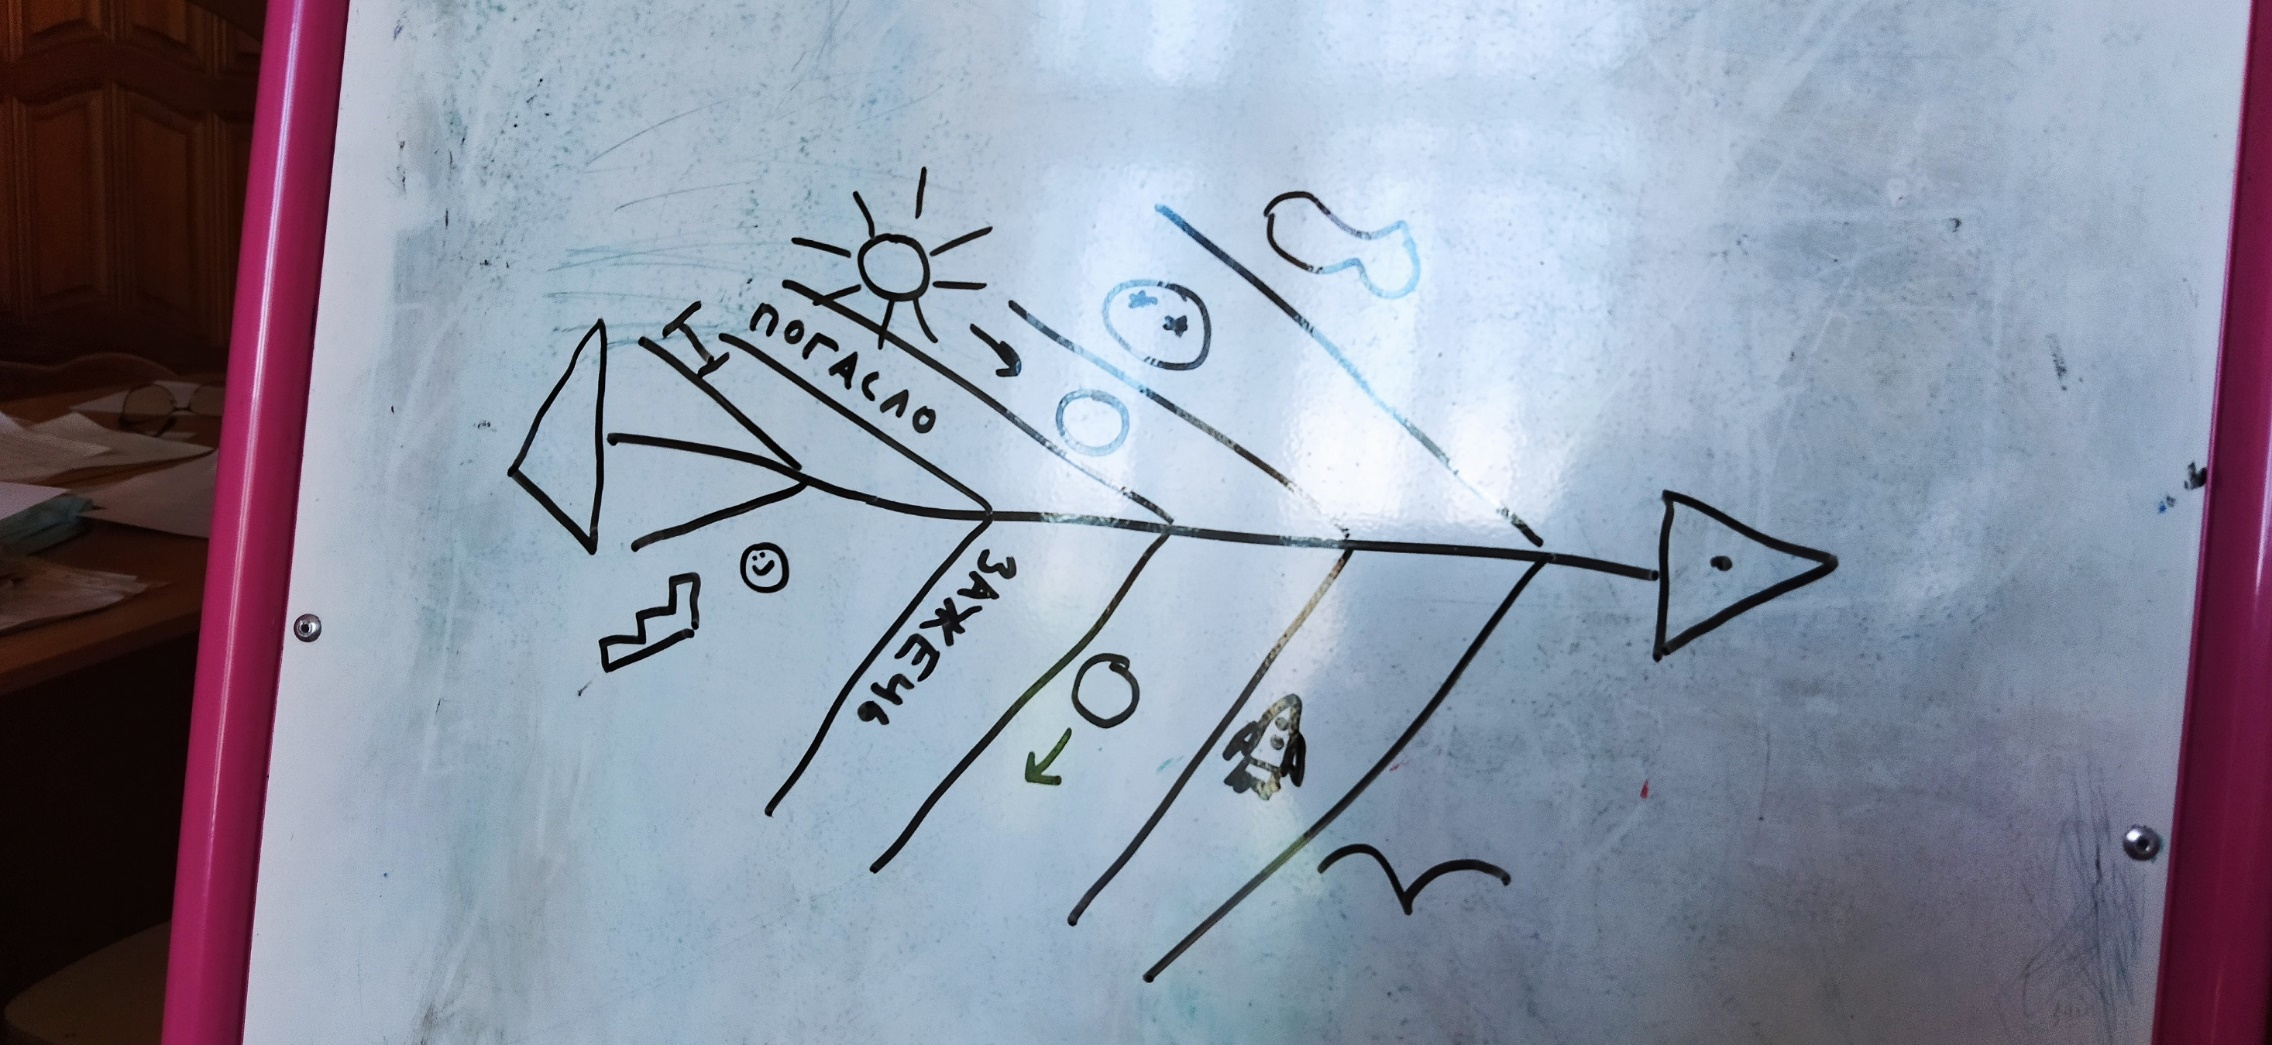 ПОГАСЛО
ЗАЖЕЧЬ